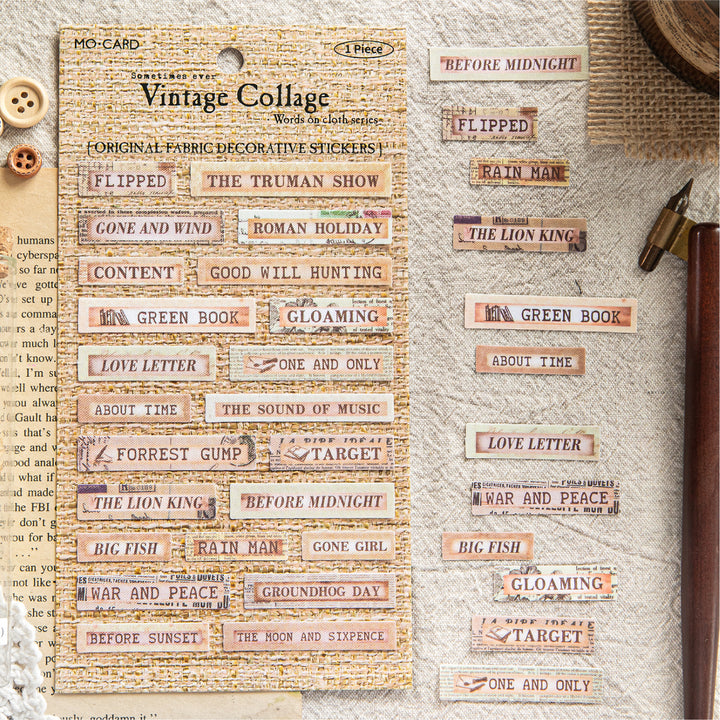 MO·CARD
1 Piece
Sometimes ever
Vintage Collage
Words on cloth series
[ORIGINAL FABRIC DECORATIVE STICKERS]
FLIPPED
THE TRUMAN SHOW
GONE AND WIND
ROMAN HOLIDAY
CONTENT
GOOD WILL HUNTING
GREEN BOOK
GLOAMING
LOVE LETTER
ONE AND ONLY
ABOUT TIME
THE SOUND OF MUSIC
FORREST GUMP
LA PIPE IDEALE
TARGET
THE LION KING
BEFORE MIDNIGHT
BIG FISH
RAIN MAN
GONE GIRL
WAR AND PEACE
GROUNDHOG DAY
BEFORE SUNSET
THE MOON AND SIXPENCE
BEFORE MIDNIGHT
FLIPPED
RAIN MAN
THE LION KING
GREEN BOOK
ABOUT TIME
LOVE LETTER
WAR AND PEACE
BIG FISH
GLOAMING
TARGET
ONE AND ONLY
humans
cyberspa
so far
gotten
set up
a day
much l
n't know.
I'm su
well where
you always
Gault ha
that's
and w
ood anal
what if
made
the FBI
don't g
you for ba
..."
can you
not like
she was
of their
she st
usly, goddamn it,"